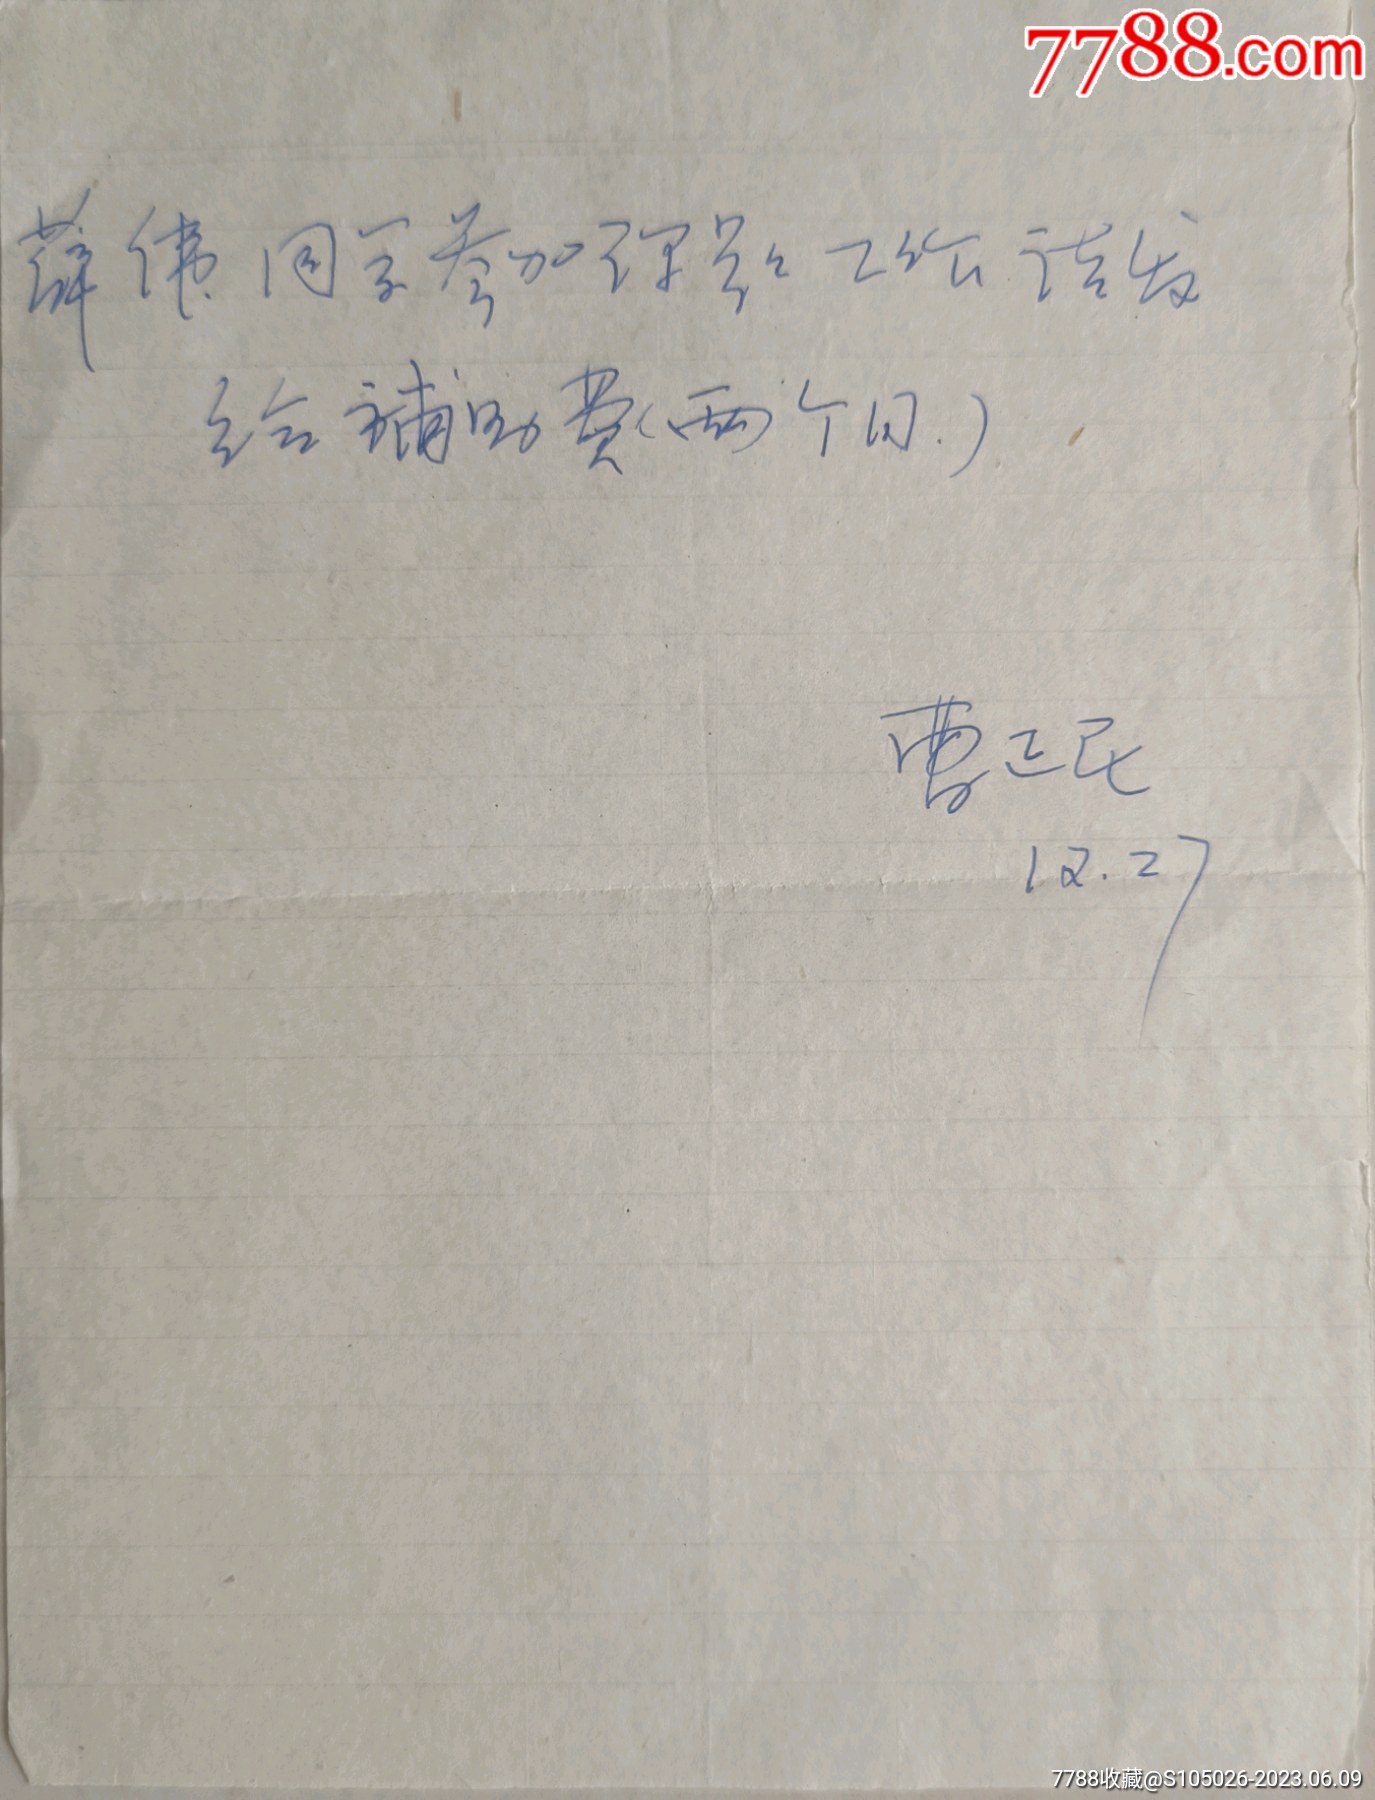 7788.com
薛伟同学参加课题工作 请发
给補助费(两个月.)
曹正民
12.27
7788收藏@S105026-2023.06.09